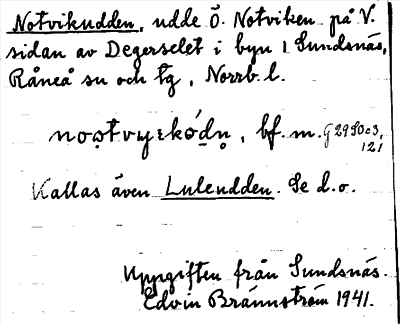 Notvikudden, udde Ö. Notviken på V.
sidan av Degerselet i byn 1 Sundsnäs,
Råneå sn och tg, Norrb. l.
bf. m.
Kallas även Luleudden. Se d. o.
Uppgiften från Sundsnäs.
Edvin Brännström 1941.